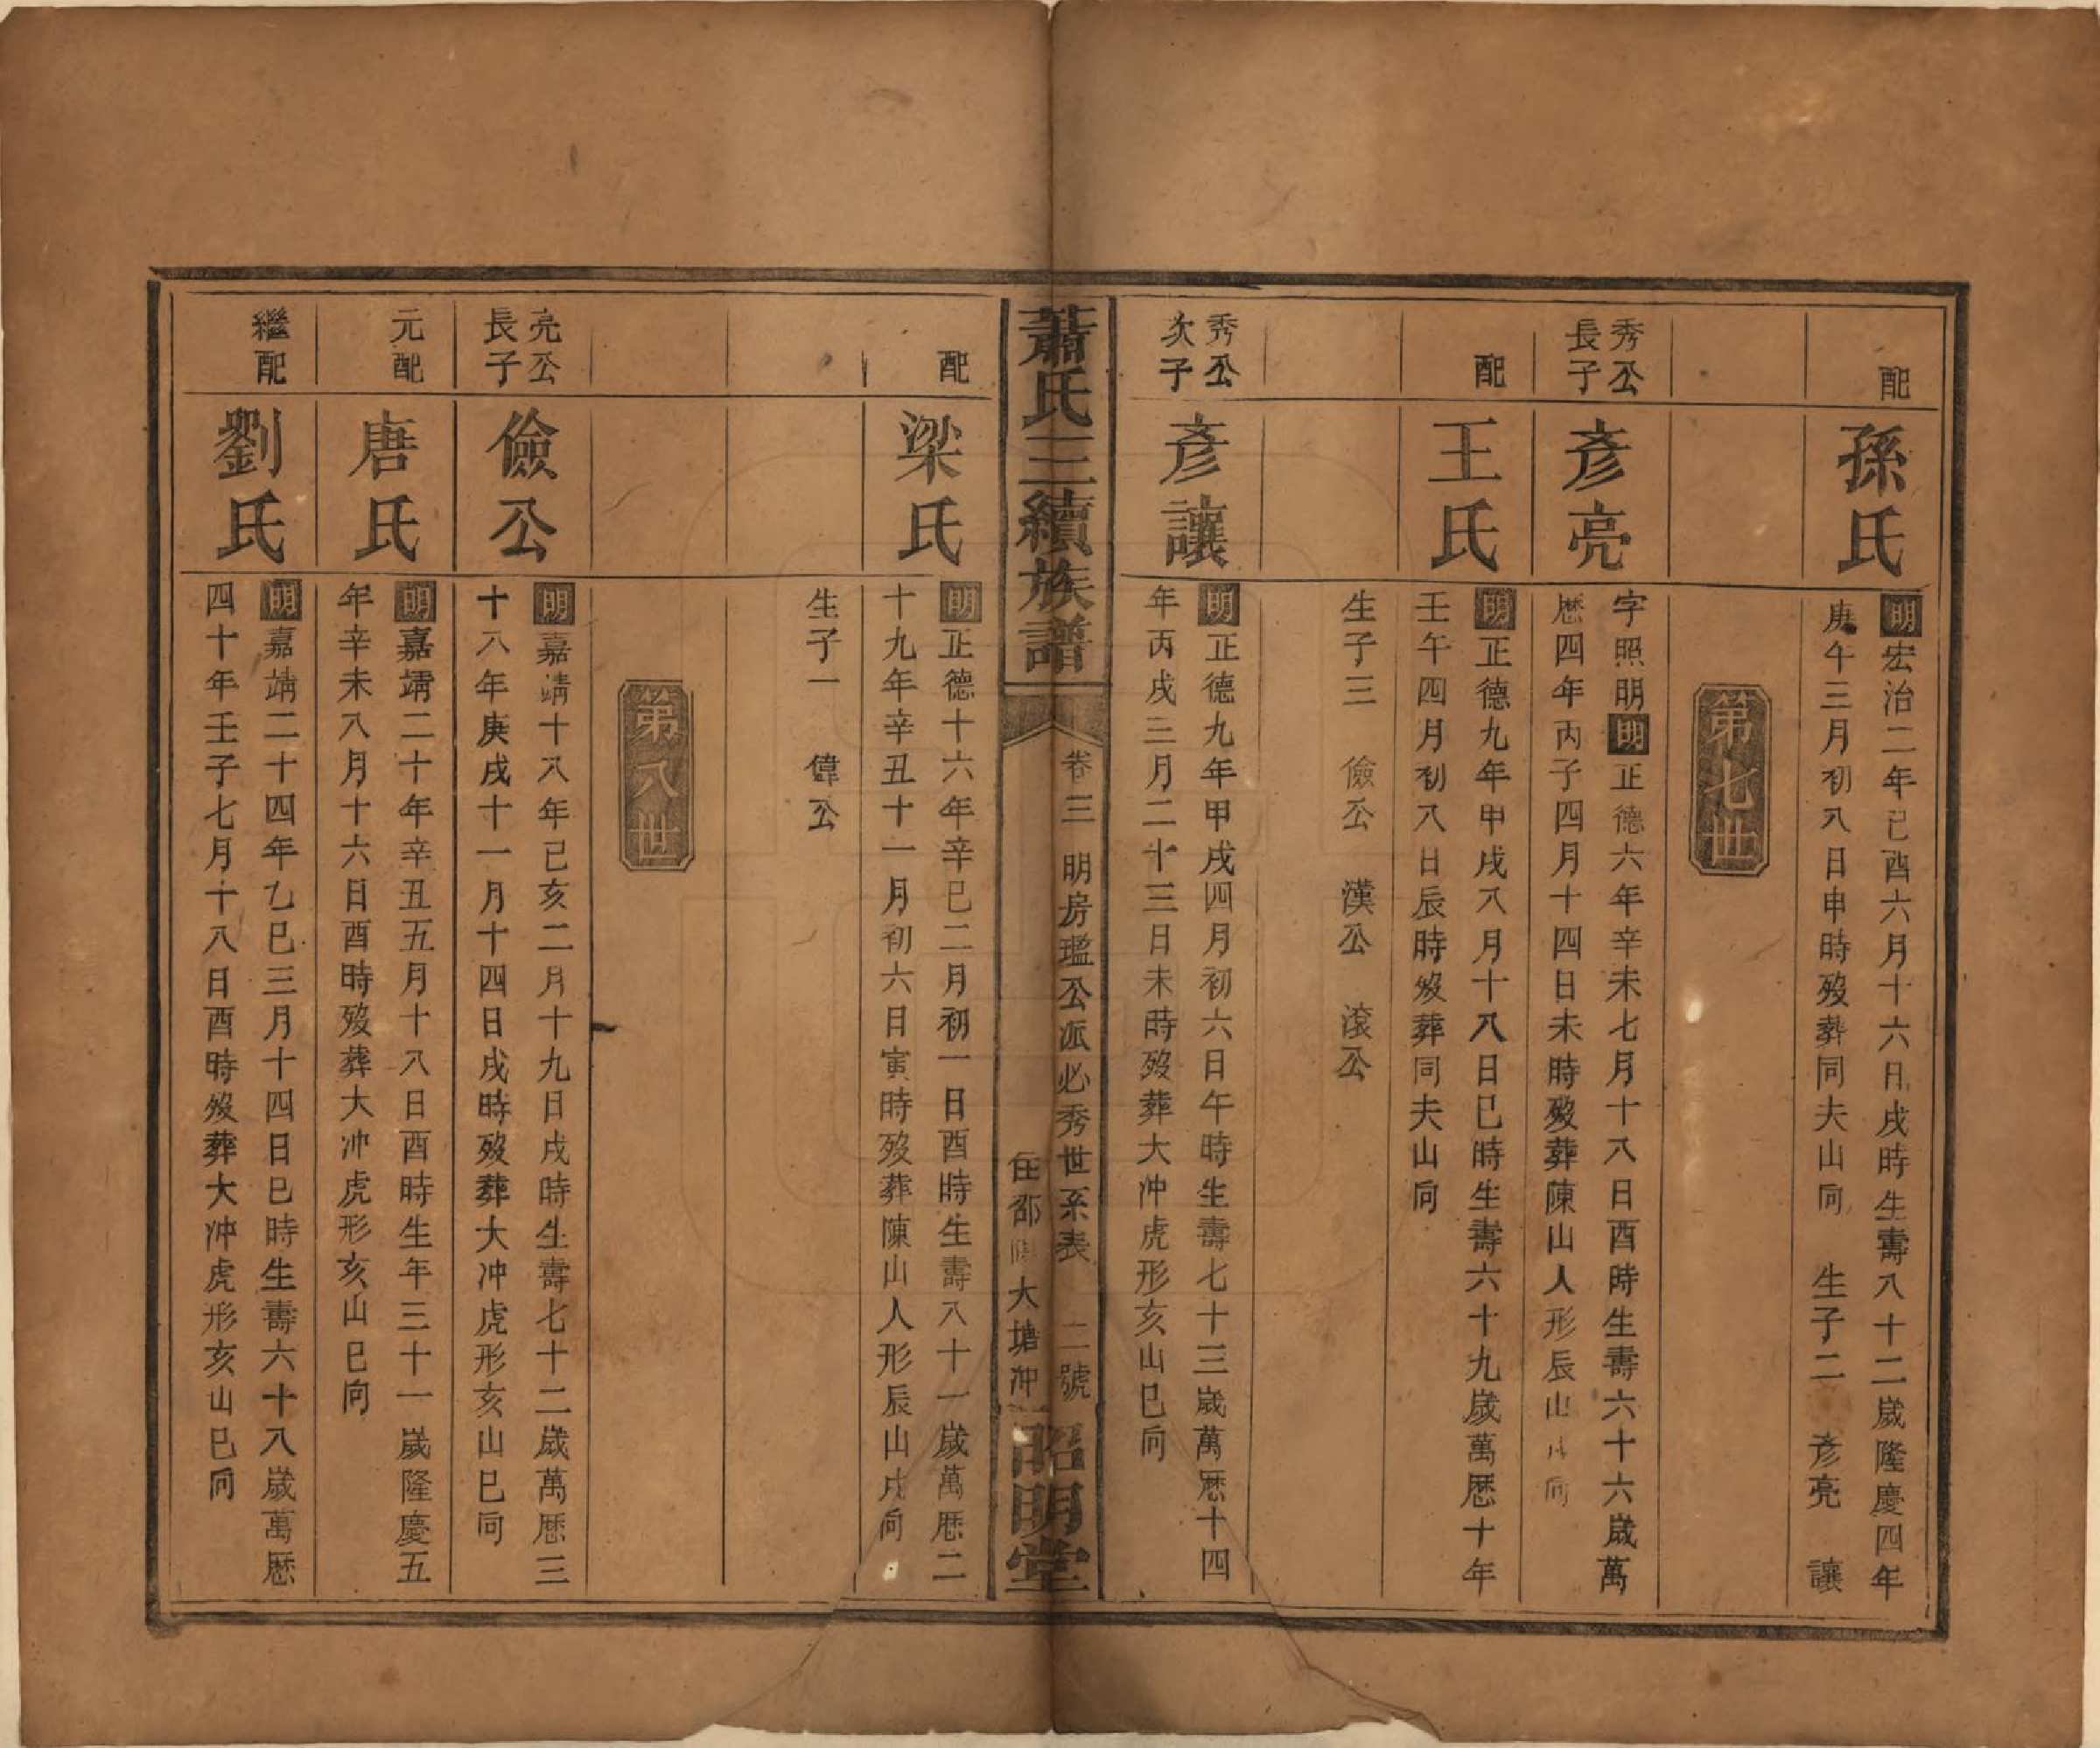 配
孫氏
明宏治二年己酉六月十六日戌時生壽八十二歲隆慶四年
庚午三月初八日申時歿葬同夫山向 生子二 彥亮 讓
第七世
秀公
長子
彥亮
字照明明正德六年辛未七月十八日酉時生壽六十六歲萬
歷四年丙子四月十四日未時歿葬陳山人形辰山向
配
王氏
明正德九年甲戌八月十八日巳時生壽六十九歲萬歷十年
壬午四月初八日辰時歿葬同夫山向
生子三 儉公 漢公 滾公
秀公
次子
彥讓
明正德九年甲戌四月初六日午時生壽七十三歲萬歷十四
年丙戌三月二十三日未時歿葬大冲虎形亥山巳向
蕭氏三續族譜
卷三 明房瑥公派必秀世系表 二號
住邵陽大塘冲
昭明堂
配
梁氏
明正德十六年辛巳二月初一日酉時生壽八十一歲萬歷二
十九年辛丑十一月初六日寅時歿葬陳山人形辰山戌向
生子一 偉公
第八世
亮公
長子
儉公
明嘉靖十八年己亥二月十九日戌時生壽七十二歲萬歷三
十八年庚戌十一月十四日戌時歿葬大冲虎形亥山巳向
元配
唐氏
明嘉靖二十年辛丑五月十八日酉時生年三十一歲隆慶五
年辛未八月十六日酉時歿葬大冲虎形亥山巳向
繼配
劉氏
明嘉靖二十四年乙巳三月十四日巳時生壽六十八歲萬歷
四十年壬子七月十八日酉時歿葬大冲虎形亥山巳向